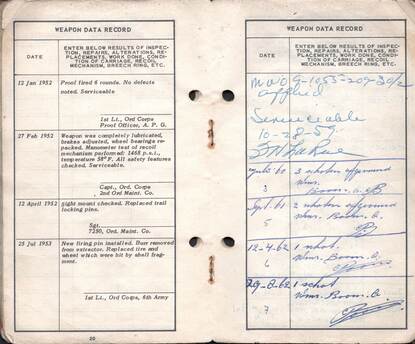 WEAPON DATA RECORD
DATE
ENTER BELOW RESULTS OF INSPEC-
TION, REPAIRS, ALTERATIONS, RE-
PLACEMENTS, WORK DONE, CONDI-
TION OF CARRIAGE, RECOIL
MECHANISM, BREECH RING, ETC.
12 Jan 1952
Proof fired 6 rounds. No defects
noted. Serviceable
1st Lt., Ord Corps
Proof Officer, A. P. G.
27 Feb 1952
Weapon was completely lubricated,
brakes adjusted, wheel bearings re-
packed. Manometer test of recoil
mechanism performed: 1468 p.s.i.,
temperature 58°F. All safety features
checked. Serviceable.
Capt., Ord. Corps
2nd Ord Maint. Co.
12 April 1952
Sight mount checked. Replaced trail
locking pins.
Sgt.
7250, Ord. Maint. Co.
25 Jul 1953
New firing pin installed. Burr removed
from extractor. Replaced tire and
wheel which were hit by shell frag-
ment.
1st Lt., Ord Corps, 6th Army
20
WEAPON DATA RECORD
DATE
ENTER BELOW RESULTS OF INSPEC-
TION, REPAIRS, ALTERATIONS, RE-
PLACEMENTS, WORK DONE, CONDI-
TION OF CARRIAGE, RECOIL
MECHANISM, BREECH RING, ETC.
applied
Serviceable
10-28-59
60
3 schoten
3
Sept. 61
2 schoten
5
12-4-62
1 schot
6
29-8-62
1 schot
7